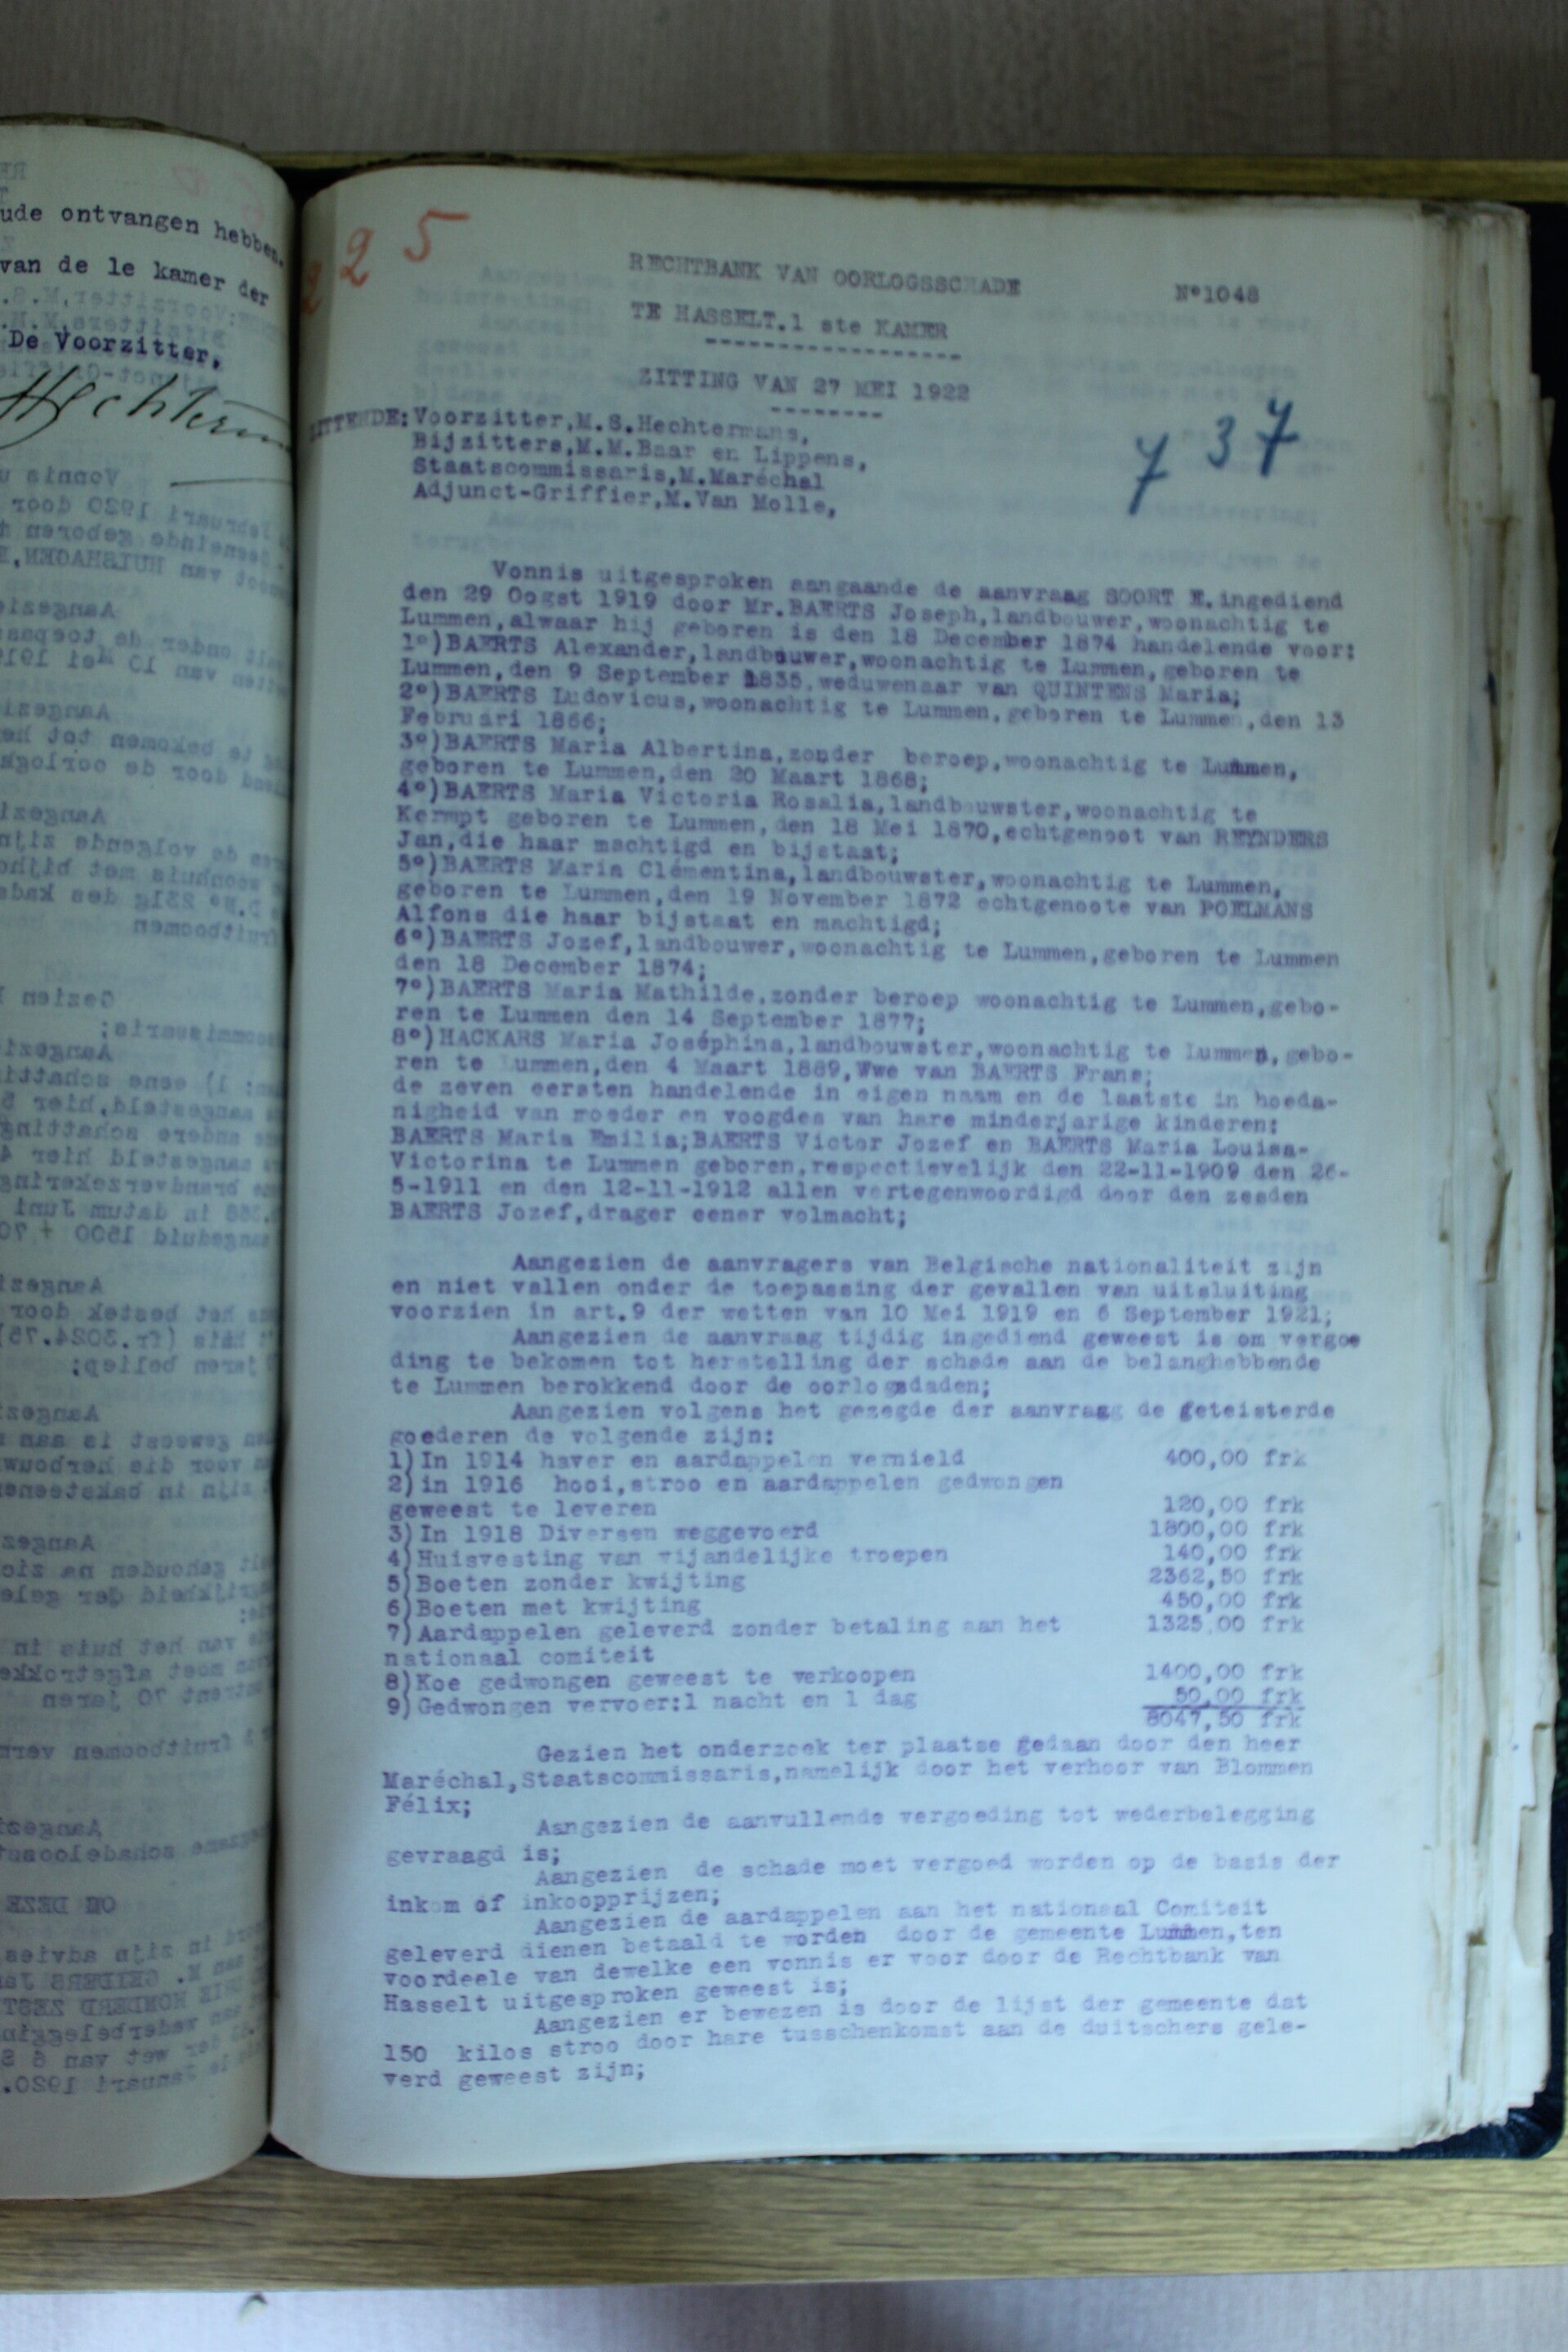 ude ontvangen hebben.
van de 1e kamer der
De Voorzitter,
225
RECHTBANK VAN OORLOGSSCHADE
N°1048
TE HASSELT.1 ste KAMER
ZITTING VAN 27 MEI 1922
737
ZITTENDE:Voorzitter,M.S.Hechtermans,
Bijzitters,M.M.Baar en Lippens,
Staatscommissaris,M.Maréchal
Adjunct-Griffier,M.Van Molle,
Vonnis uitgesproken aangaande de aanvraag SOORT E.ingediend
den 29 Oogst 1919 door Mr.BAERTS Joseph,landbouwer,woonachtig te
Lummen,alwaar hij geboren is den 18 December 1874 handelende voor:
1°)BAERTS Alexander,landbouwer,woonachtig te Lummen,geboren te
Lummen,den 9 September 1835,weduwenaar van QUINTENS Maria;
2°)BAERTS Ludovicus,woonachtig te Lummen,geboren te Lummen,den 13
Februari 1866;
3°)BAERTS Maria Albertina,zonder beroep,woonachtig te Lummen,
geboren te Lummen,den 20 Maart 1868;
4°)BAERTS Maria Victoria Rosalia,landbouwster,woonachtig te
Kermpt geboren te Lummen,den 18 Mei 1870,echtgenoot van REYNDERS
Jan,die haar machtigd en bijstaat;
5°)BAERTS Maria Clémentina,landbouwster,woonachtig te Lummen,
geboren te Lummen,den 19 November 1872 echtgenoote van POELMANS
Alfons die haar bijstaat en machtigd;
6°)BAERTS Jozef,landbouwer,woonachtig te Lummen,geboren te Lummen
den 18 December 1874;
7°)BAERTS Maria Mathilde,zonder beroep woonachtig te Lummen,gebo-
ren te Lummen den 14 September 1877;
8°)HACKARS Maria Joséphina,landbouwster,woonachtig te Lummen,gebo-
ren te Lummen,den 4 Maart 1889,Wwe van BAERTS Frans;
de zeven eersten handelende in eigen naam en de laatste in hoeda-
nigheid van moeder en voogdes van hare minderjarige kinderen:
BAERTS Maria Emilia;BAERTS Victor Jozef en BAERTS Maria Louisa-
Victorina te Lummen geboren,respectievelijk den 22-11-1909 den 26-
5-1911 en den 12-11-1912 allen vertegenwoordigd door den zesden
BAERTS Jozef,drager eener volmacht;
Aangezien de aanvragers van Belgische nationaliteit zijn
en niet vallen onder de toepassing der gevallen van uitsluiting
voorzien in art.9 der wetten van 10 Mei 1919 en 6 September 1921;
Aangezien de aanvraag tijdig ingediend geweest is om vergoe
ding te bekomen tot herstelling der schade aan de belanghebbende
te Lummen berokkend door de oorlogsdaden;
Aangezien volgens het gezegde der aanvraag de geteisterde
goederen de volgende zijn:
1)In 1914 haver en aardappelen vernield 400,00 frk
2)in 1916 hooi,stroo en aardappelen gedwongen
geweest te leveren 120,00 frk
3)In 1918 Diversen weggevoerd 1800,00 frk
4)Huisvesting van vijandelijke troepen 140,00 frk
5)Boeten zonder kwijting 2362,50 frk
6)Boeten met kwijting 450,00 frk
7)Aardappelen geleverd zonder betaling aan het 1325,00 frk
nationaal comiteit
8)Koe gedwongen geweest te verkoopen 1400,00 frk
9)Gedwongen vervoer:1 nacht en 1 dag 50,00 frk
8047,50 frk
Gezien het onderzoek ter plaatse gedaan door den heer
Maréchal,Staatscommissaris,namelijk door het verhoor van Blommen
Félix;
Aangezien de aanvullende vergoeding tot wederbelegging
gevraagd is;
Aangezien de schade moet vergoed worden op de basis der
inkom of inkoopprijzen;
Aangezien de aardappelen aan het nationaal Comiteit
geleverd dienen betaald te worden door de gemeente Lummen,ten
voordeele van dewelke een vonnis er voor door de Rechtbank van
Hasselt uitgesproken geweest is;
Aangezien er bewezen is door de lijst der gemeente dat
150 kilos stroo door hare tusschenkomst aan de duitschers gele-
verd geweest zijn;